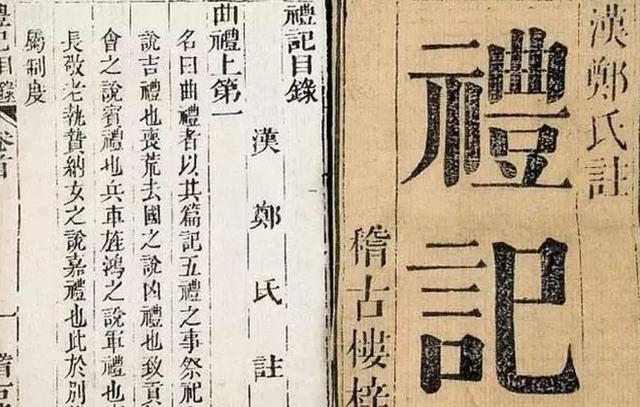 漢鄭氏註
禮記
稽古樓梓
禮記目錄
漢鄭氏註
曲禮上第一
名曰曲禮者以其篇記五禮之事祭祀
說吉禮也喪荒去國之說凶禮也致貢
會之說賓禮也兵車旌鴻之說軍禮也
長敬老執贄納女之說嘉禮也此於別
屬制度
禮記目錄
卷首
一
稽古